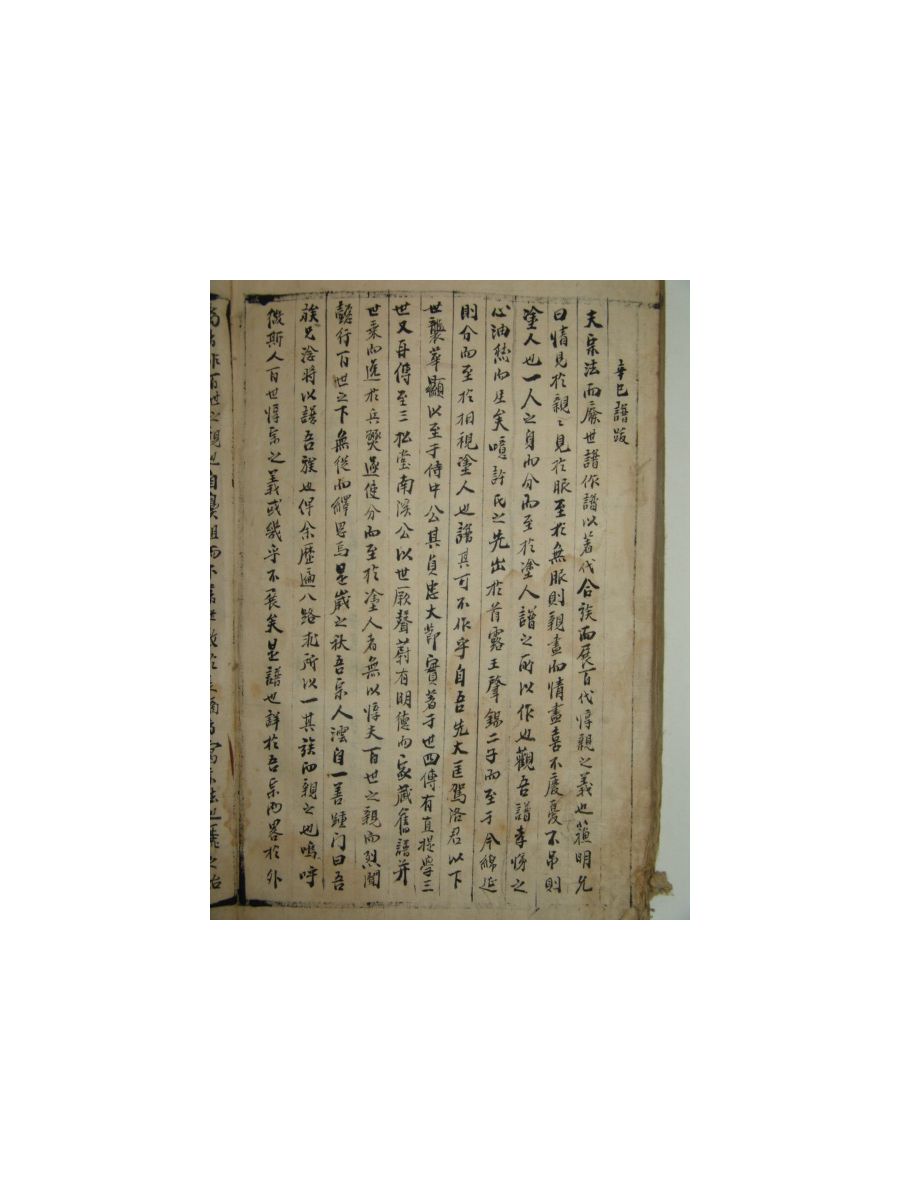 辛巳譜跋
夫宗法而廢世譜作譜以著代合族而展百代惇親之義也蘓明允
曰情見於親〻見於服至於無服則親盡而情盡喜不慶憂不吊則
塗人也一人之身而分而至於塗人譜之所以作也觀吾譜孝悌之
心油然而生矣噫許氏之先出於首露王肇錫二子而至于今綿延
則分而至於相視塗人也譜其可不作乎自吾先大匡駕洛君以下
世襲華顯以至于侍中公其貞忠大節實著于世四傳有直提學三
世又再傳至三松堂南溪公以世厥聲蔚有明德而家藏舊譜并
世乘而逸於兵燹遂使分而至於塗人者無以惇夫百世之親而烈聞
懿行百世之下無從而繹思焉是歲之秋吾宗人澐自一善踵门曰吾
族兄淰將以譜吾族也俾余歷遍八路求所以一其族而親之也嗚呼
微斯人百世惇宗之義或幾乎不展矣是譜也詳於吾宗而畧於外
百世之親也自